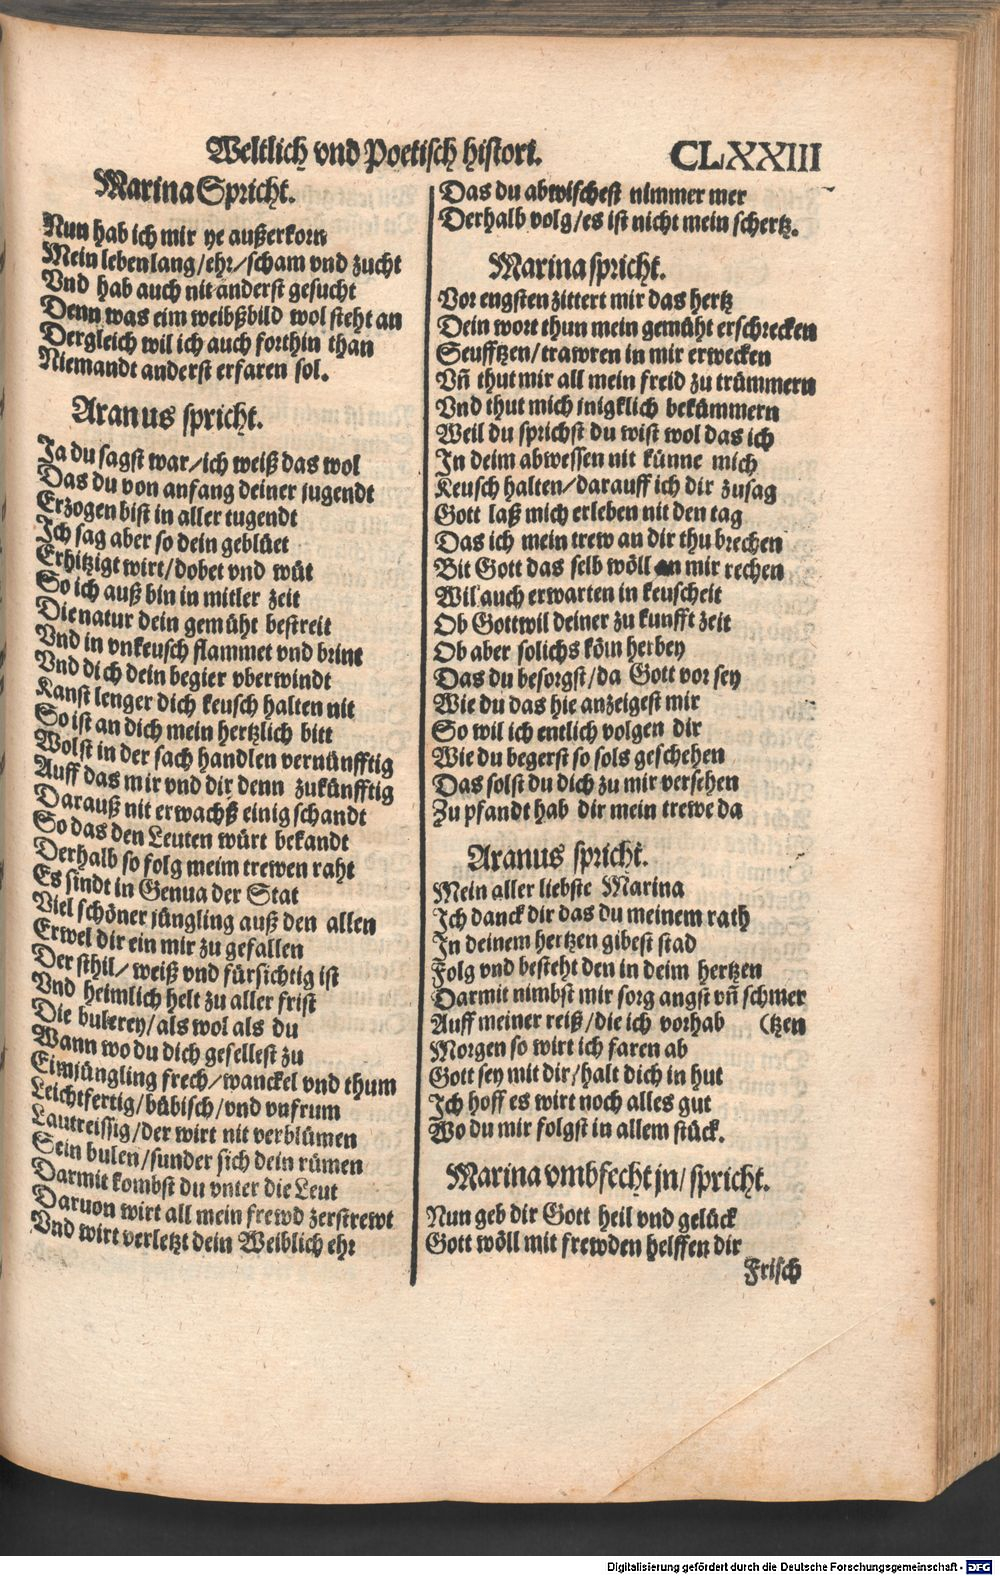 Weltlich vnd Poetisch histori. CLXXIII
Marina Spricht.
Nun hab ich mir ye außerkorn
Mein lebenlang/ehr/scham vnd zucht
Vnd hab auch nit anderst gesucht
Denn was eim weibßbild wol steht an
Dergleich wil ich auch forthin than
Niemandt anderst erfaren sol.
Aranus spricht.
Ja du sagst war/ich weiß das wol
Das du von anfang deiner jugendt
Erzogen bist in aller tugendt
Ich sag aber so dein geblüet
Erhitzigt wirt/dobet vnd wüt
So ich auß bin in mitler zeit
Die natur dein gemüht bestreit
Vnd in vnkeusch flammet vnd brint
Vnd dich dein begier vberwindt
Kanst lenger dich keusch halten nit
So ist an dich mein hertzlich bitt
Wolst in der sach handlen vernünfftig
Auff das mir vnd dir denn zukünfftig
Darauß nit erwachß einig schandt
So das den Leuten würt bekandt
Derhalb so folg meim trewen raht
Es sindt in Genua der Stat
Viel schöner jüngling auß den allen
Erwel dir ein mir zu gefallen
Der sthil/ weiß vnd fürsichtig ist
Vnd heimlich helt zu aller frist
Die bulerey/als wol als du
Wann wo du dich gesellest zu
Eim jüngling frech/wanckel vnd thum
Leichtfertig/bübisch/vnd vnfrum
Lautreissig/der wirt nit verblümen
Sein bulen/sunder sich dein rümen
Darmit kombst du vnter die Leut
Daruon wirt all mein frewd zerstrewt
Vnd wirt verletzt dein Weiblich ehr
Das du abwischest nimmer mer
Derhalb volg/es ist nicht mein schertz.
Marina spricht.
Vor engsten zittert mir das hertz
Dein wort thun mein gemüht erschrecken
Seufftzen/trawren in mir erwecken
Vñ thut mir all mein freid zu trümmern
Vnd thut mich inigklich bekümmern
Weil du sprichst du wist wol das ich
In deim abwessen nit künne mich
Keusch halten/darauff ich dir zusag
Gott laß mich erleben nit den tag
Das ich mein trew an dir thu brechen
Bit Gott das selb wöll an mir rechen
Wil auch erwarten in keuscheit
Ob Gott wil deiner zu kunfft zeit
Ob aber solichs köm herbey
Das du besorgst/da Gott vor sey
Wie du das hie anzeigest mir
So wil ich entlich volgen dir
Wie du begerst so sols geschehen
Das solst du dich zu mir versehen
Zu pfandt hab dir mein trewe da
Aranus spricht.
Mein aller liebste Marina
Ich danck dir das du meinem rath
In deinem hertzen gibest stad
Folg vnd besteht den in deim hertzen
Darmit nimbst mir sorg angst vñ schmer
Auff meiner reiß/die ich vorhab (tzen
Morgen so wirt ich faren ab
Gott sey mit dir/halt dich in hut
Ich hoff es wirt noch alles gut
Wo du mir folgst in allem stück.
Marina vmbfecht jn/ spricht.
Nun geb dir Gott heil vnd gelück
Gott wöll mit frewden helffen dir
Frisch
Digitalisierung gefördert durch die Deutsche Forschungsgemeinschaft - DFG